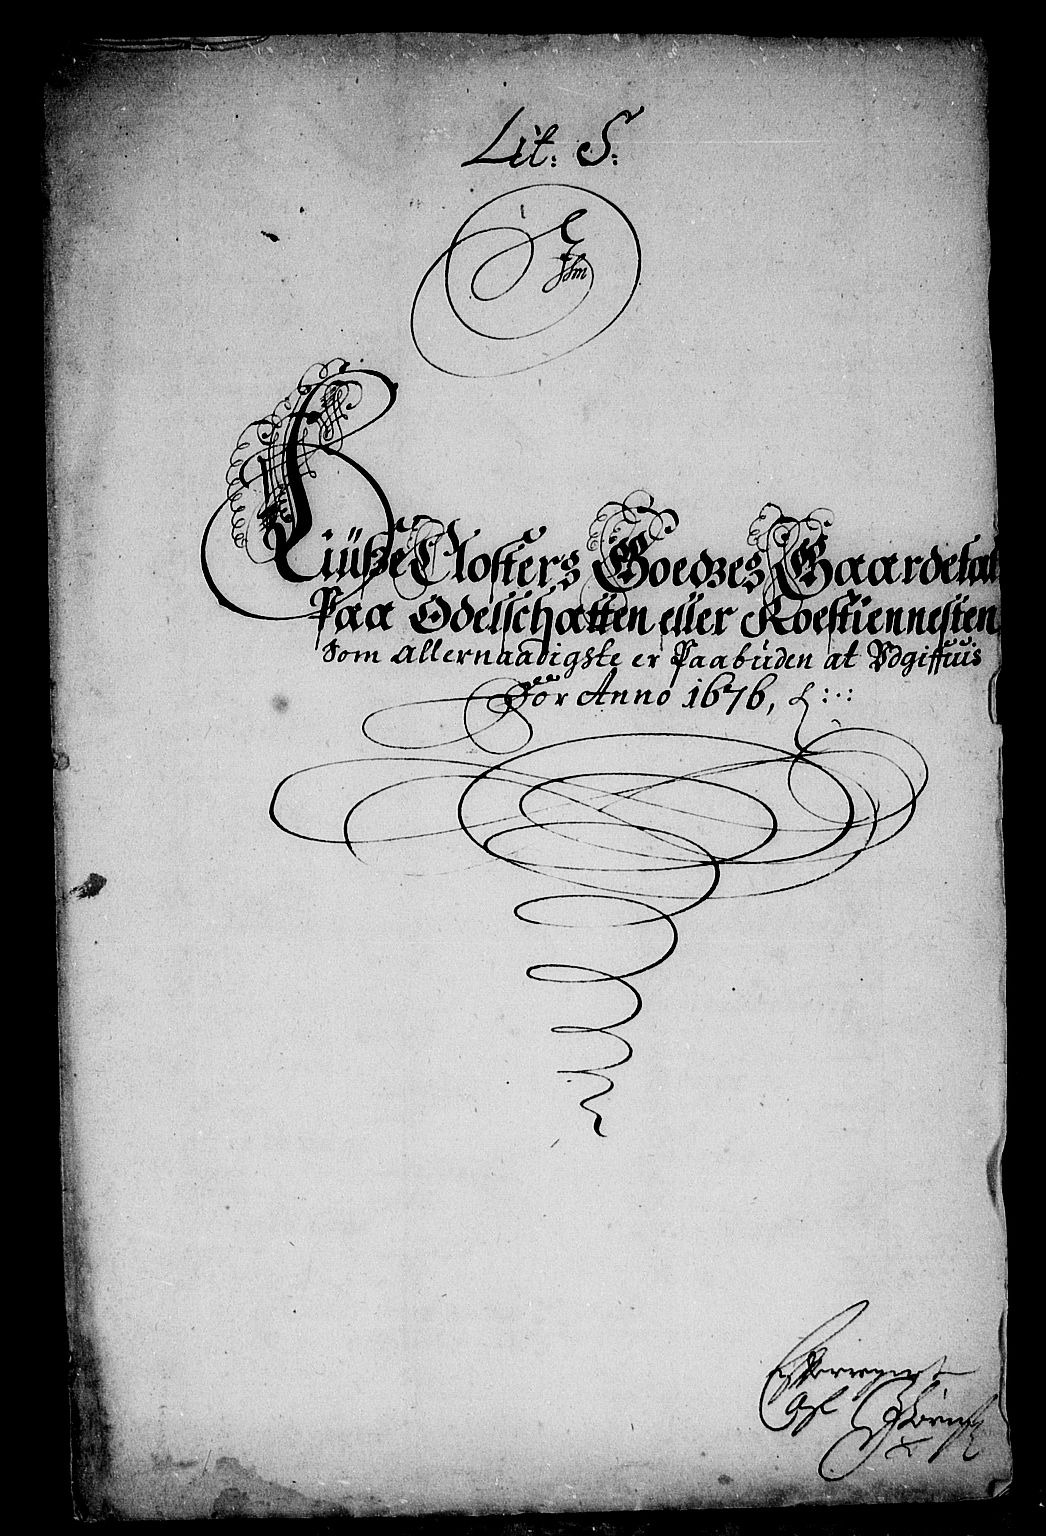 Lit: S:
Liüße Closters Goedzes Gaardetal
Paa Odelsschatten eller Roestiennesten
Som allernaadigste er Paabüden at Vdgiffuis
För Anno 1676,